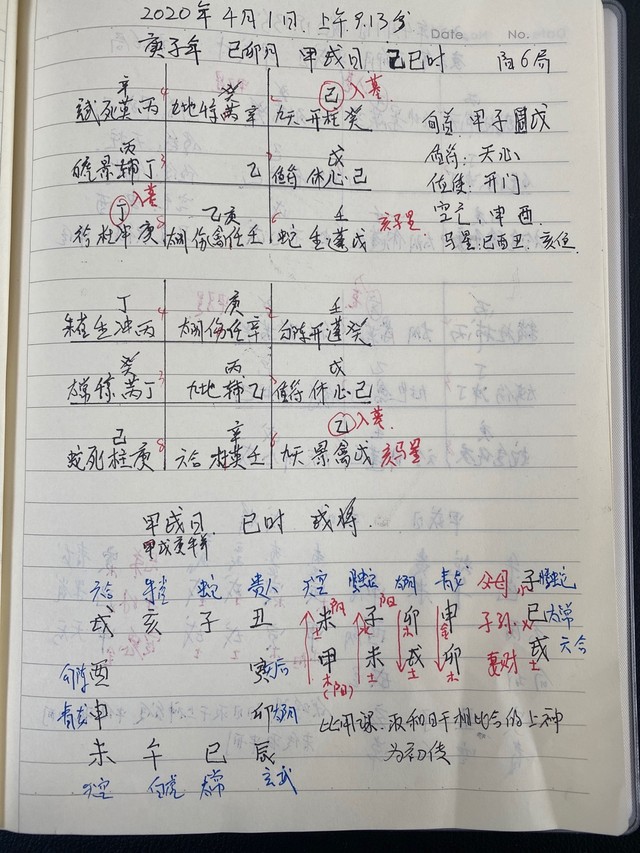 2020年4月1日.上午9.13分
Date No.
庚子年 己卯月 甲戌日 己巳时 阳6局
辛 癸 己 入墓
死英丙 九地 芮辛 九天开柱癸 旬首 甲子 戊
丙 戊 值符:天心
景辅丁 3 乙 值符休心己 值使:开门
丁 入墓 乙庚 壬 空亡:申酉
冲庚 8 太阴伤禽任壬 蛇生蓬戊 亥马星 马星:巳酉丑.亥位
丁 庚 壬
朱雀生冲丙 4 太阴伤任辛 勾陈开蓬癸
癸 丙 戊
太常 芮丁 3 九地 辅乙 值符休心己
己 辛 乙 入墓
蛇死柱庚 8 六合 英壬 九天景禽戊 亥马星
甲戌日 巳时 戌将
甲戌庚牛羊
六合 朱雀 蛇 贵人 天空 螣蛇 太阴 青龙 父母 子 螣蛇
戌 亥 子 丑 未 阴 土 子 阳 水 卯 木 申 金 子孙 巳 火 太常
甲 木(阳) 未 土 戌 土 卯 木 妻财 戌 土 六合
勾陈 酉 寅 后
青龙 申 卯 太阴 比用课.取和日干相比合的上神
未 午 巳 辰 为初传
天空 白虎 太常 玄武